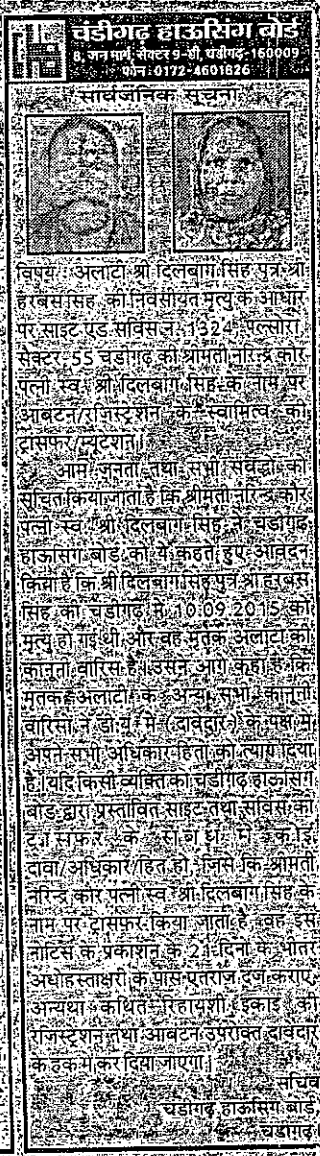 चंडीगढ़ हाऊसिंग बोर्ड
8, जन मार्ग, सेक्टर 9-डी, चंडीगढ़-160009
फोन : 0172-4601826
सार्वजनिक सूचना
विषय : अलाटी श्री दिलबाग सिंह पुत्र श्री
हरबंस सिंह की निर्वसीयत मृत्यु के आधार
पर साइट एंड सर्विस नं. 1324 पल्सोरा,
सेक्टर-55 चंडीगढ़ की श्रीमती नरिन्द्र कौर
पत्नी स्व. श्री दिलबाग सिंह के नाम पर
आबंटन/रजिस्ट्रेशन के स्वामित्व की
ट्रांसफर/म्यूटेशन।
आम जनता तथा सभी संबद्धों को
सूचित किया जाता है कि श्रीमती नरिन्द्र कौर
पत्नी स्व. श्री दिलबाग सिंह ने चंडीगढ़
हाऊसिंग बोर्ड को ये कहते हुए आवेदन
किया है कि श्री दिलबाग सिंह पुत्र श्री हरबंस
सिंह की चंडीगढ़ में 10.09.2015 को
मृत्यु हो गई थी और वह मृतक अलाटी की
कानूनी वारिस है। उसने आगे कहा है कि
मृतक अलाटी के अन्य सभी कानूनी
वारिसों ने डी.यू. में (दावेदार) के पक्ष में
अपने सभी अधिकार/हितों को त्याग दिया
है। यदि किसी व्यक्ति को चंडीगढ़ हाऊसिंग
बोर्ड द्वारा प्रस्तावित साइट तथा सर्विस की
ट्रांसफर के संबंध में कोई
दावा/अधिकार/हित हो, जिसे कि श्रीमती
नरिन्द्र कौर पत्नी स्व. श्री दिलबाग सिंह के
नाम पर ट्रांसफर किया जाता है, वह इस
नोटिस के प्रकाशन के 21 दिनों के भीतर
अधोहस्ताक्षरी के पास एतराज दर्ज कराए,
अन्यथा कथित रिहायशी ईकाई की
रजिस्ट्रेशन तथा आबंटन उपरोक्त दावेदार
के हक में कर दिया जाएगा।
सचिव
चंडीगढ़ हाऊसिंग बोर्ड,
चंडीगढ़।